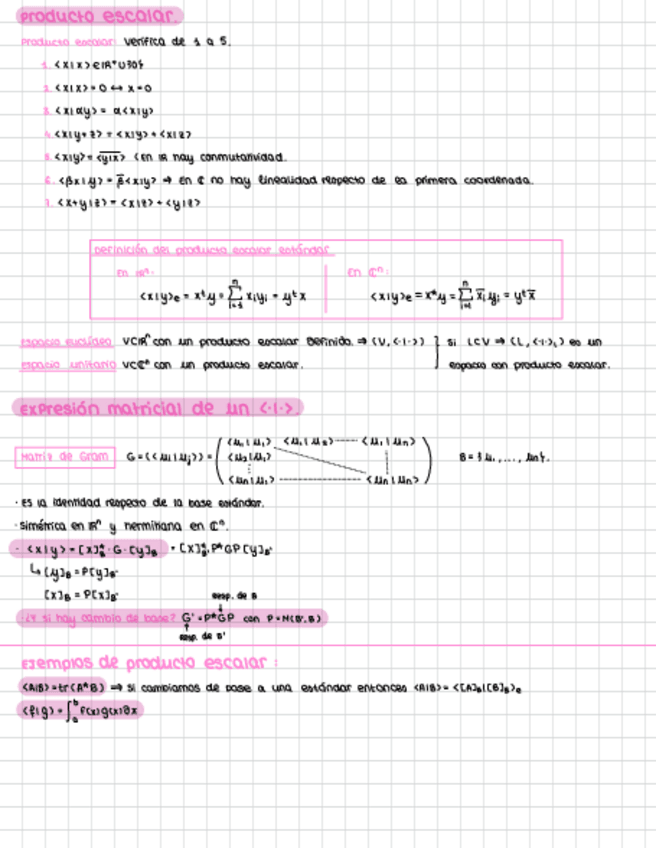 Producto escalar.
Producto escalar: verifica de 1 a 5.
1. <x|x> ∈ ℝ⁺∪{0}
2. <x|x> = 0 ↔ x=0
3. <x|αy> = α<x|y>
4. <x|y+z> = <x|y> + <x|z>
5. <x|y> = \overline{<y|x>} (en ℝ hay conmutatividad.
6. <βx|y> = β̄<x|y> → en ℂ no hay linealidad respecto de la primera coordenada.
7. <x+y|z> = <x|z> + <y|z>
Definición del producto escalar estándar
en ℝⁿ: en ℂⁿ:
<x|y>e = xᵗy = ∑ⁿᵢ₌₁ xᵢyᵢ = yᵗx <x|y>e = x*y = ∑ⁿᵢ₌₁ x̄ᵢyᵢ = yᵗx̄
espacio euclídeo VCℝⁿ con un producto escalar definido. ⇒ (V, <·|·>) } si LCV ⇒ (L, <·|·>) es un
espacio unitario VCℂⁿ con un producto escalar. espacio con producto escalar.
Expresión matricial de un <·|·>.
Matriz de Gram G = (<ui|uj>) = ( <u1|u1> <u1|u2> ---- <u1|un> B = {u1, ..., un}.
<u2|u1>
<un|u1> ---- <un|un> )
· Es la identidad respecto de la base estándar.
· Simétrica en ℝⁿ y hermitiana en ℂⁿ.
· <x|y> = [x]*B · G · [y]B = [x]*B' P*GP [y]B'
↳ [y]B = P[y]B'
[x]B = P[x]B'
resp. de B
¿Y si hay cambio de base? G' = P*GP con P = M(B',B)
resp. de B'
Ejemplos de producto escalar:
<A|B> = tr(A*B) ⇒ si cambiamos de base a una estándar entonces <A|B> = <[A]B|[B]B>e
<f|g> = ∫ₐᵇ f(x)g(x)dx